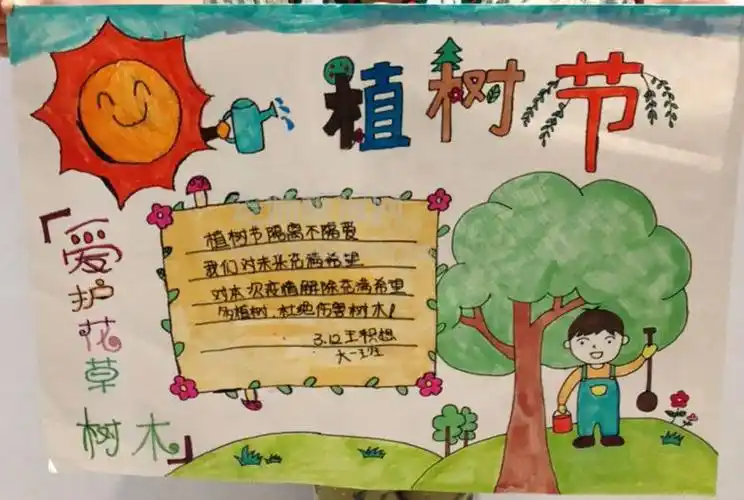 植树节
「爱护花草树木」
植树节隔离不隔爱
我们对未来充满希望
对本次疫情解除充满希望
多植树、杜绝伤害树木！
3.12 王积想
大一班